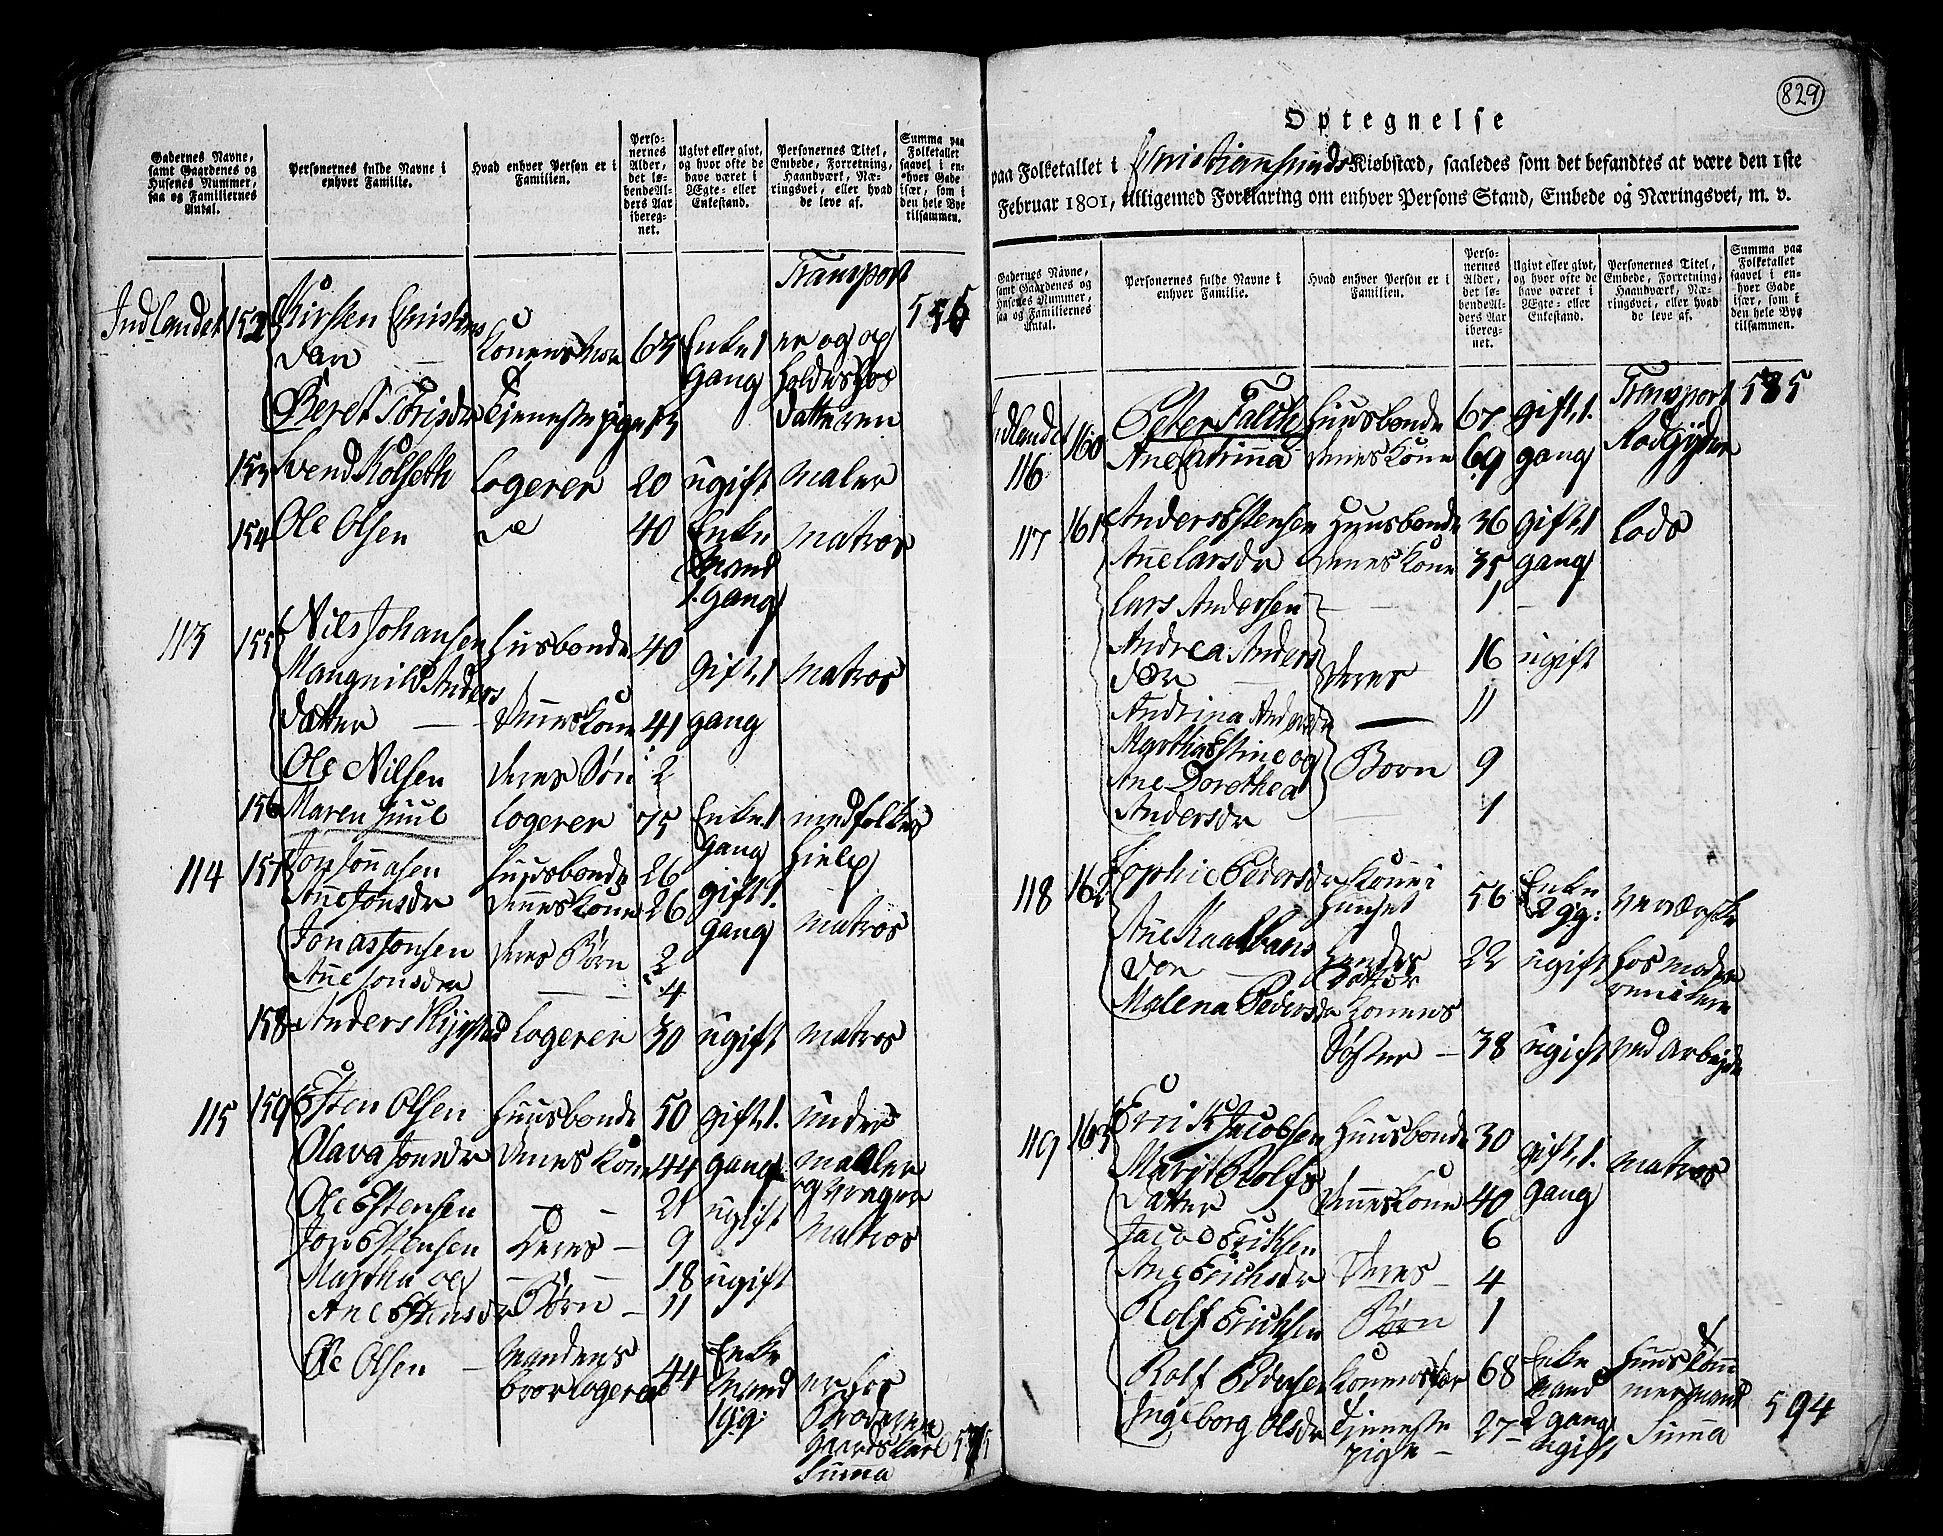 829
Gadernes Navne, samt Gaardenes og Husenes Nummer, saa og Familiernes Antal.
Personernes fulde Navne i enhver Familie.
Hvad enhver Person er i Familien.
Personernes Alder, det løbendeAlders Aar iberegnet.
Ugivt eller givt, og hvor ofte de have været i Ægte- eller Enkestand.
Personernes Titel, Embede, Forretning, Haandværk, Næringsvei, eller hvad de leve af.
Summa paa Folketallet saavel i enhver Gade især, som i den hele Bye tilsammen.
Transport
Indlandet 152 Kirsten Christens
dær Konens Mor 63 Enke 1 gang er og op holdes hos datteren
Beret Torisdr Tjenestepige
153 Svend Kolseth Logerer 20 ugift Maler
154 Ole Olsen do 40 Enke Mand 1. gang Matros
113 155 Nils Johansen Husbonde 40 gift 1 Matros
Mangnild Anders
datter Hans Kone 41 gang
Ole Nilsen deres Søn 2
156 Maren Juul Logerer 75 Enke 1 gang med folkes hielp
114 157 Jon Jonasen Huusbonde 26 gift 1.
Ane Jonsdr Hans Kone 26 gang Matros
Jonas Jonsen deres Børn 2
Ane Jonsdr 4
158 Anders Logerer 30 ugift Matros
115 159 Esten Olsen Huusbonde 50 gift 1. under
Olava Jonsdr Hans Kone 44 gang maaler og Vrager
Ole Estensen 21 ugift Matros
Jon Estensen Deres 9
Martha og 18 ugift
Ane Estensdr Børn 11
Ole Olsen Mandens bror Logerer 44 Enke Mand 1 gg: er for Broderen Gaards Karl
Summa 575
Optegnelse
paa Folketallet i Christiansunds Kiøbstæd, saaledes som det befandtes at være den 1ste
Februar 1801, tilligemed Forklaring om enhver Persons Stand, Embede og Næringsvei, m. v.
Gadernes Navne, samt Gaardenes og Husenes Nummer, saa og Familiernes Antal.
Personernes fulde Navne i enhver Familie.
Hvad enhver Person er i Familien.
Personernes Alder, det løbendeAlders Aar iberegnet.
Ugivt eller givt, og hvor ofte de have været i Ægte- eller Enkestand.
Personernes Titel, Embede, Forretning, Haandværk, Næringsvei, eller hvad de leve af.
Summa paa Folketallet saavel i enhver Gade især, som i den hele Bye tilsammen.
Transport 575
Indlandet 160 Peter Falch Huusbonde 67 gift 1.
116 Ane Catrina Hans Kone 69 gang
117 161 Anders Estensen Huusbonde 36 gift 1 Lods
Ane Larsdr Hans Kone 35 gang
Lars Andersen 1
Andrea Anders
dær deres 16 ugift
Andrina Andersdr 11
Martha Stine og Børn 9
Ane Dorethea
Andersdr 1
118 162 Sophie Pedersdr Kone i huuset 56 Enke 2 gg:
Ane
dær Hendes Datter 22 ugift hos moderen
Malena Pedersdr Konens
Søster 38 ugift ved Arbejde
119 163 Erik Jacobsen Huusbonde 30 gift 1. Matros
Marit Rolfs
datter Hans Kone 40 gang
Jacob Eriksen 6
Ane Erichsdr Deres 4
Rolf Ericksen Børn 1
Rolf Pedersen Konens far 68 Enke Mand 2 gang Huus Tømmermand
Ingeborg Olsdr Tjeneste pige 27 ugift
Summa 594